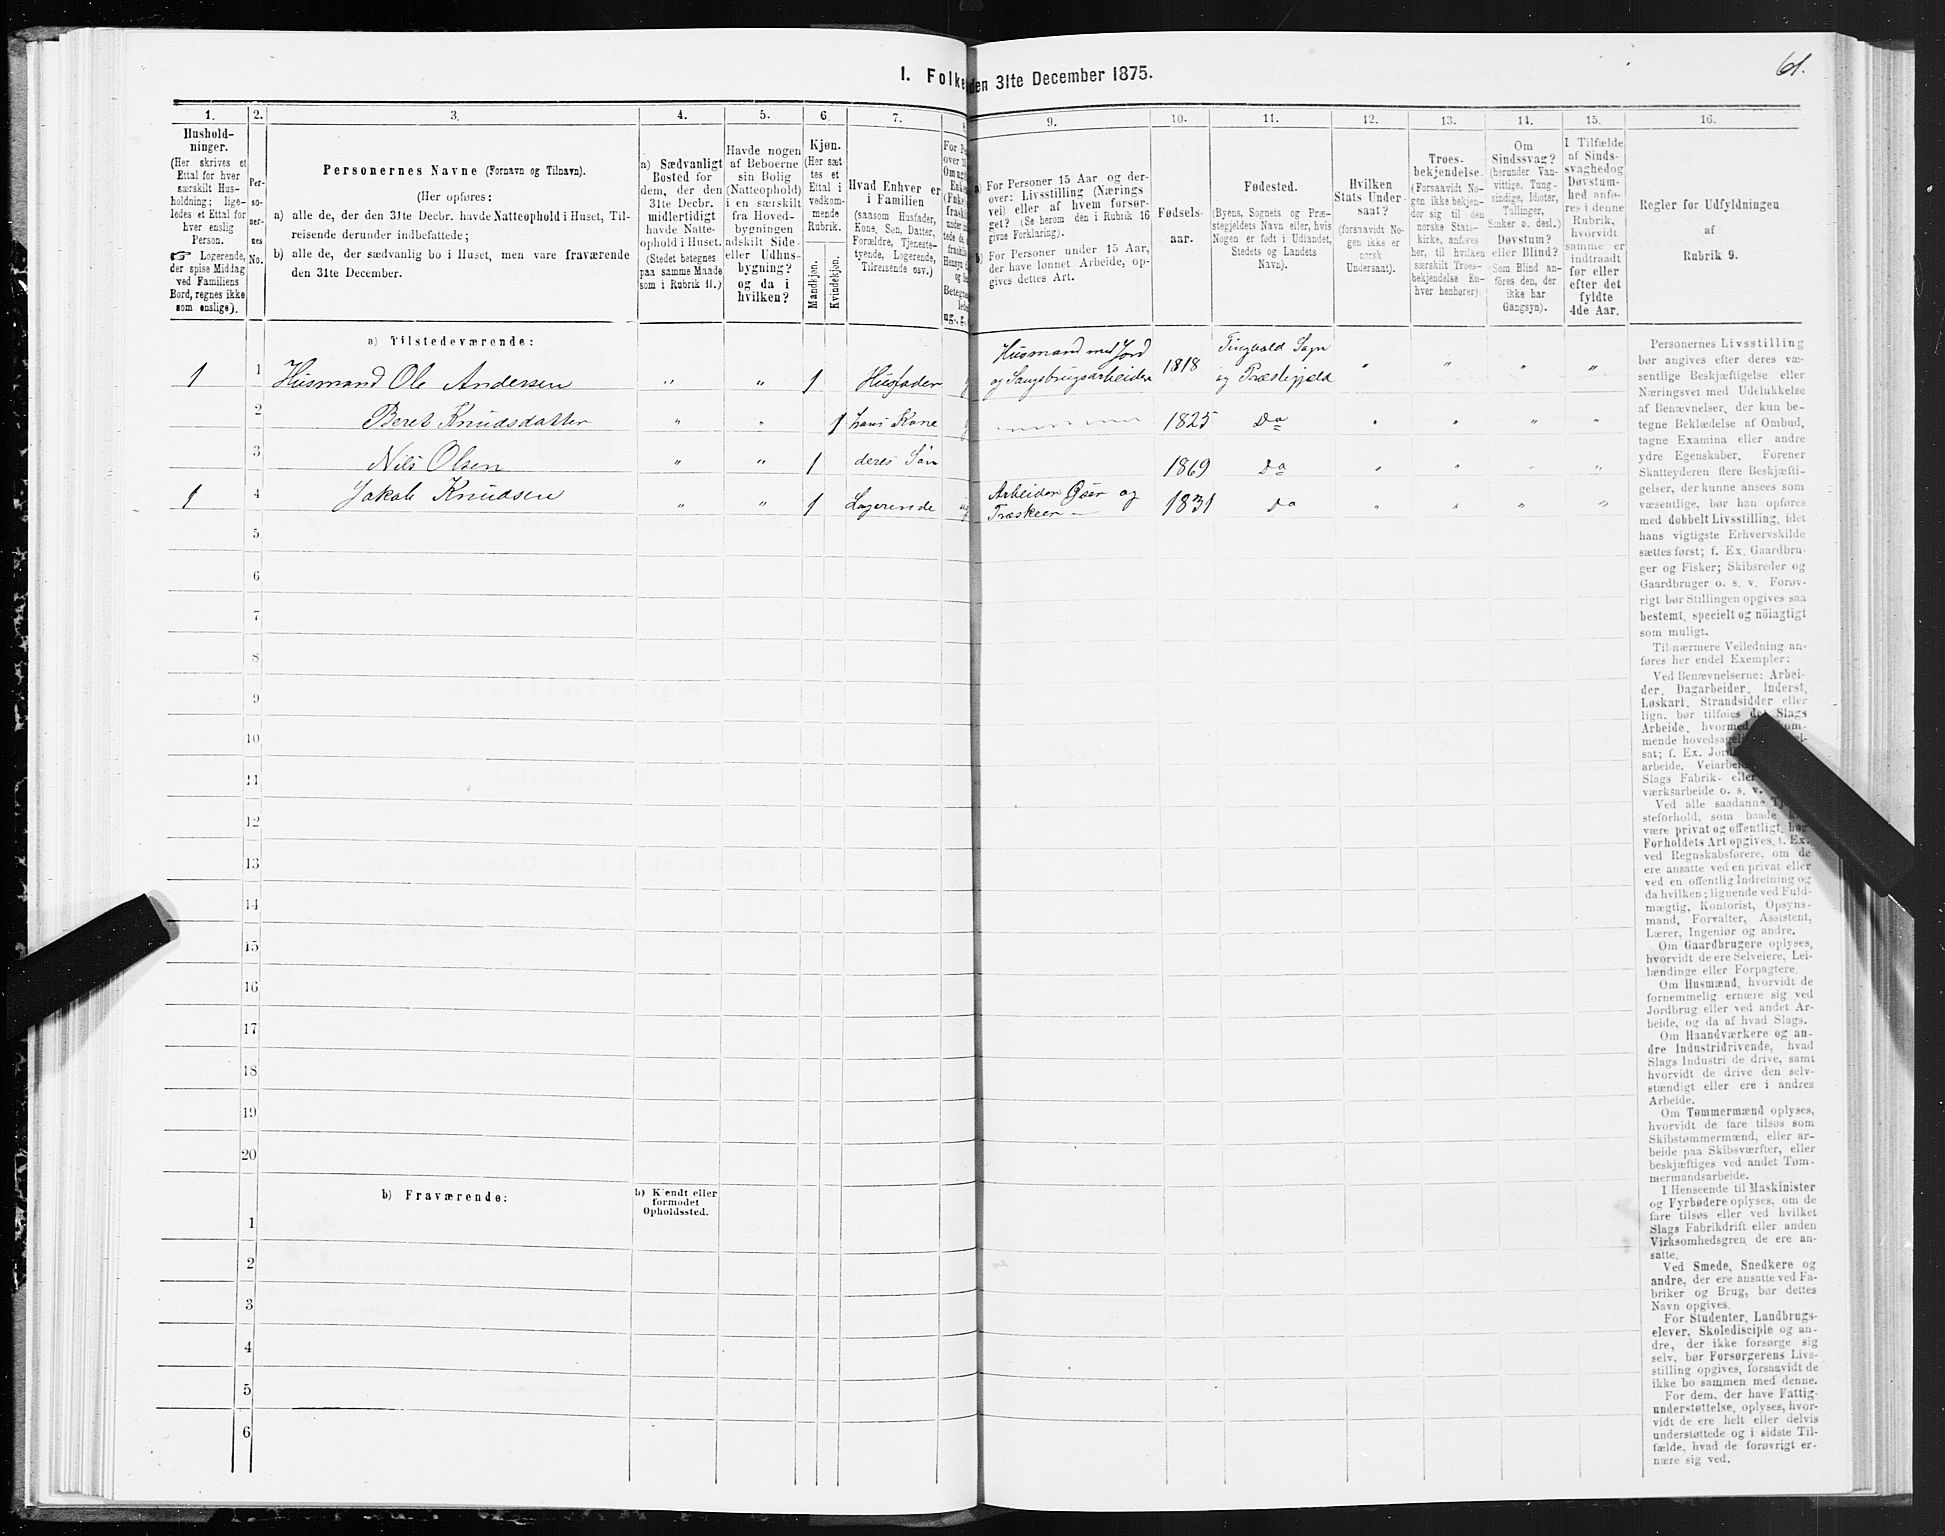 1. Folke den 31te December 1875.
61.
1. 2. 3. 4. 5. 6. 7. 8. 9. 10. 11. 12. 13. 14. 15. 16.
Hushold-
ninger.
(Her skrives et
Ettal for hver
særskilt Hus-
holdning; lige-
ledes et Ettal for
hver enslig
Person.
☞ Logerende,
der spise Middag
ved Familiens
Bord, regnes ikke
som enslige).
Per-
so-
ner-
nes
No.
Personernes Navne (Fornavn og Tilnavn).
(Her opføres:
a) alle de, der den 31te Decbr. havde Natteophold i Huset, Til-
reisende derunder indbefattede;
b) alle de, der sædvanlig bo i Huset, men vare fraværende
den 31te December.
a) Sædvanligt
Bosted for
dem, der den
31te Decbr.
midlertidigt
havde Natte-
ophold i Huset.
(Stedet betegnes
paa samme Maade
som i Rubrik 11.)
Havde nogen
af Beboerne
sin Bolig
(Natteophold)
i en særskilt
fra Hoved-
bygningen
adskilt Side-
eller Udhus-
bygning?
og da i
hvilken?
Kjøn.
(Her sæt
tes et
Ettal i
vedkom-
mende
Rubrik.
Mandkjøn.
Kvindekjøn.
Hvad Enhver er
i Familien
(saasom Husfader,
Kone, Søn, Datter,
Forældre, Tjeneste-
tyende, Logerende,
Tilreisende osv.)
a) For Personer 15 Aar og der-
over: Livsstilling (Nærings
vei) eller af hvem forsør-
get? (Se herom den i Rubrik 16
givne Forklaring).
b) For Personer under 15 Aar,
der have lønnet Arbeide, op-
gives dettes Art.
Fødsels-
aar.
Fødested.
(Byens, Sognets og Præ-
stegjeldets Navn eller, hvis
Nogen er født i Udlandet,
Stedets og Landets
Navn).
Hvilken
Stats Under-
saat?
(forsaavidt No-
gen ikke er
norsk
Undersaat).
Troes-
bekjendelse.
(Forsaavidt No-
gen ikke bekjen-
der sig til den
norske Stats-
kirke, anføres
her, til hvilken
særskilt Troes-
bekjendelse En-
hver henhører).
Om
Sindssvag?
(herunder Van-
vittige, Tung-
sindige, Idioter,
Tullinger,
Sinker o. desl.)
Døvstum?
eller Blind?
(Som Blind an-
føres den, der
ikke har
Gangsyn).
I Tilfælde
af Sinds-
svaghed og
Døvstum-
hed anfø-
res i denne
Rubrik,
hvorvidt
samme er
indtraadt
før eller
efter det
fyldte
4de Aar.
Regler for Udfyldningen
af
Rubrik 9.
a) Tilstedeværende:
1 1 Husmand Ole Andersen " " 1 Husfader g Husmand med Jord og Saugbrugsarbeider 1818 Tingvold Sogn og Præstegjæld " " " "
2 Beret Knudsdatter " " 1 hans Kone g 1825 Do " " " "
3 Nils Olsen " " 1 deres Søn 1869 Do " " " "
1 4 Jakob Knudsen " " 1 Logerende ug Arbeider Øser og Træskeer 1831 Do " " " "
5
6
7
8
9
10
11
12
13
14
15
16
17
18
19
20
b) Fraværende:
b) Kjendt eller
formodet
Opholdssted.
1
2
3
4
5
6
Personernes Livsstilling
bør angives efter deres væ-
sentlige Beskjæftigelse eller
Næringsvei med Udelukkelse
af Benævnelser, der kun be-
tegne Beklædelse af Ombud,
tagne Examina eller andre
ydre Egenskaber. Forener
Skatteyderen flere Beskjæfti-
gelser, der kunne ansees som
væsentlige, bør han opføres
med dobbelt Livsstilling, idet
hans vigtigste Erhvervskilde
sættes først; f. Ex. Gaardbru-
ger og Fisker; Skibsreder og
Gaardbruger o. s. v. Forøv-
rigt bør Stillingen opgives saa
bestemt, specielt og nöiagtigt
som muligt.
Til nærmere Veiledning an-
føres her endel Exempler:
Ved Benævnelserne: Arbei-
der, Dagarbeider, Inderst,
Løskarl, Strandsidder eller
lign. bør tilføies det Slags
Arbeide, hvormed
mende
sat; f. Ex.
arbeide, Veiarbei
Slags Fabrik- eller
værksarbeide o. s. v.
Ved alle saadanne
steforhold, som baade
være privat og offentligt, bør
Forholdets Art opgives, t. Ex.
ved Regnskabsførere, om de
ere ansatte ved en privat eller
ved en offentlig Indretning og
da hvilken; lignende ved Fuld-
mægtig, Kontorist, Opsyns-
mand, Forvalter, Assistent,
Lærer, Ingeniør og andre.
Om Gaardbrugere oplyses,
hvorvidt de ere Selveiere, Lei-
lændinge eller Forpagtere.
Om Husmænd, hvorvidt de
fornemmelig ernære sig ved
Jordbrug eller ved andet Ar-
beide, og da af hvad Slags.
Om Haandværkere og an-
dre Industridrivende, hvad
Slags Industri de drive, samt
hvorvidt de drive den selv-
stændigt eller ere i andres
Arbeide.
Om Tømmermænd oplyses,
hvorvidt de fare tilsøs som
Skibstømmermænd, eller ar-
beide paa Skibsværfter, eller
beskjæftiges ved andet Tøm-
mermandsarbeide.
I Henseende til Maskinister
og Fyrbødere oplyses, om de
fare tilsøs eller ved hvilket
Slags Fabrikdrift eller anden
Virksomhedsgren de ere an-
satte.
Ved Smede, Snedkere og
andre, der ere ansatte ved Fa-
briker og Brug, bør dettes
Navn opgives.
For Studenter, Landbrugs-
elever, Skoledisciple og an-
dre, der ikke forsørge sig
selv, bør Forsørgerens Livs-
stilling opgives, forsaavidt de
ikke bo sammen med denne.
For dem, der have Fattig-
understøttelse, oplyses, hvor-
vidt de ere helt eller delvis
understøttede og i sidste Til-
fælde, hvad de forøvrigt er-
nære sig ved.